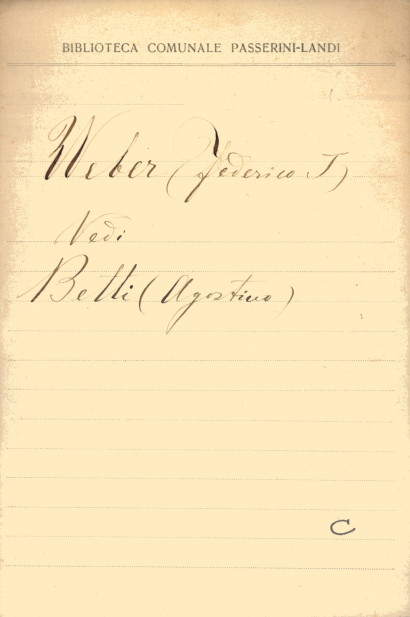 BIBLIOTECA COMUNALE PASSERINI-LANDI
Weber (Federico T)
Vedi
Betti (Agostino)
C